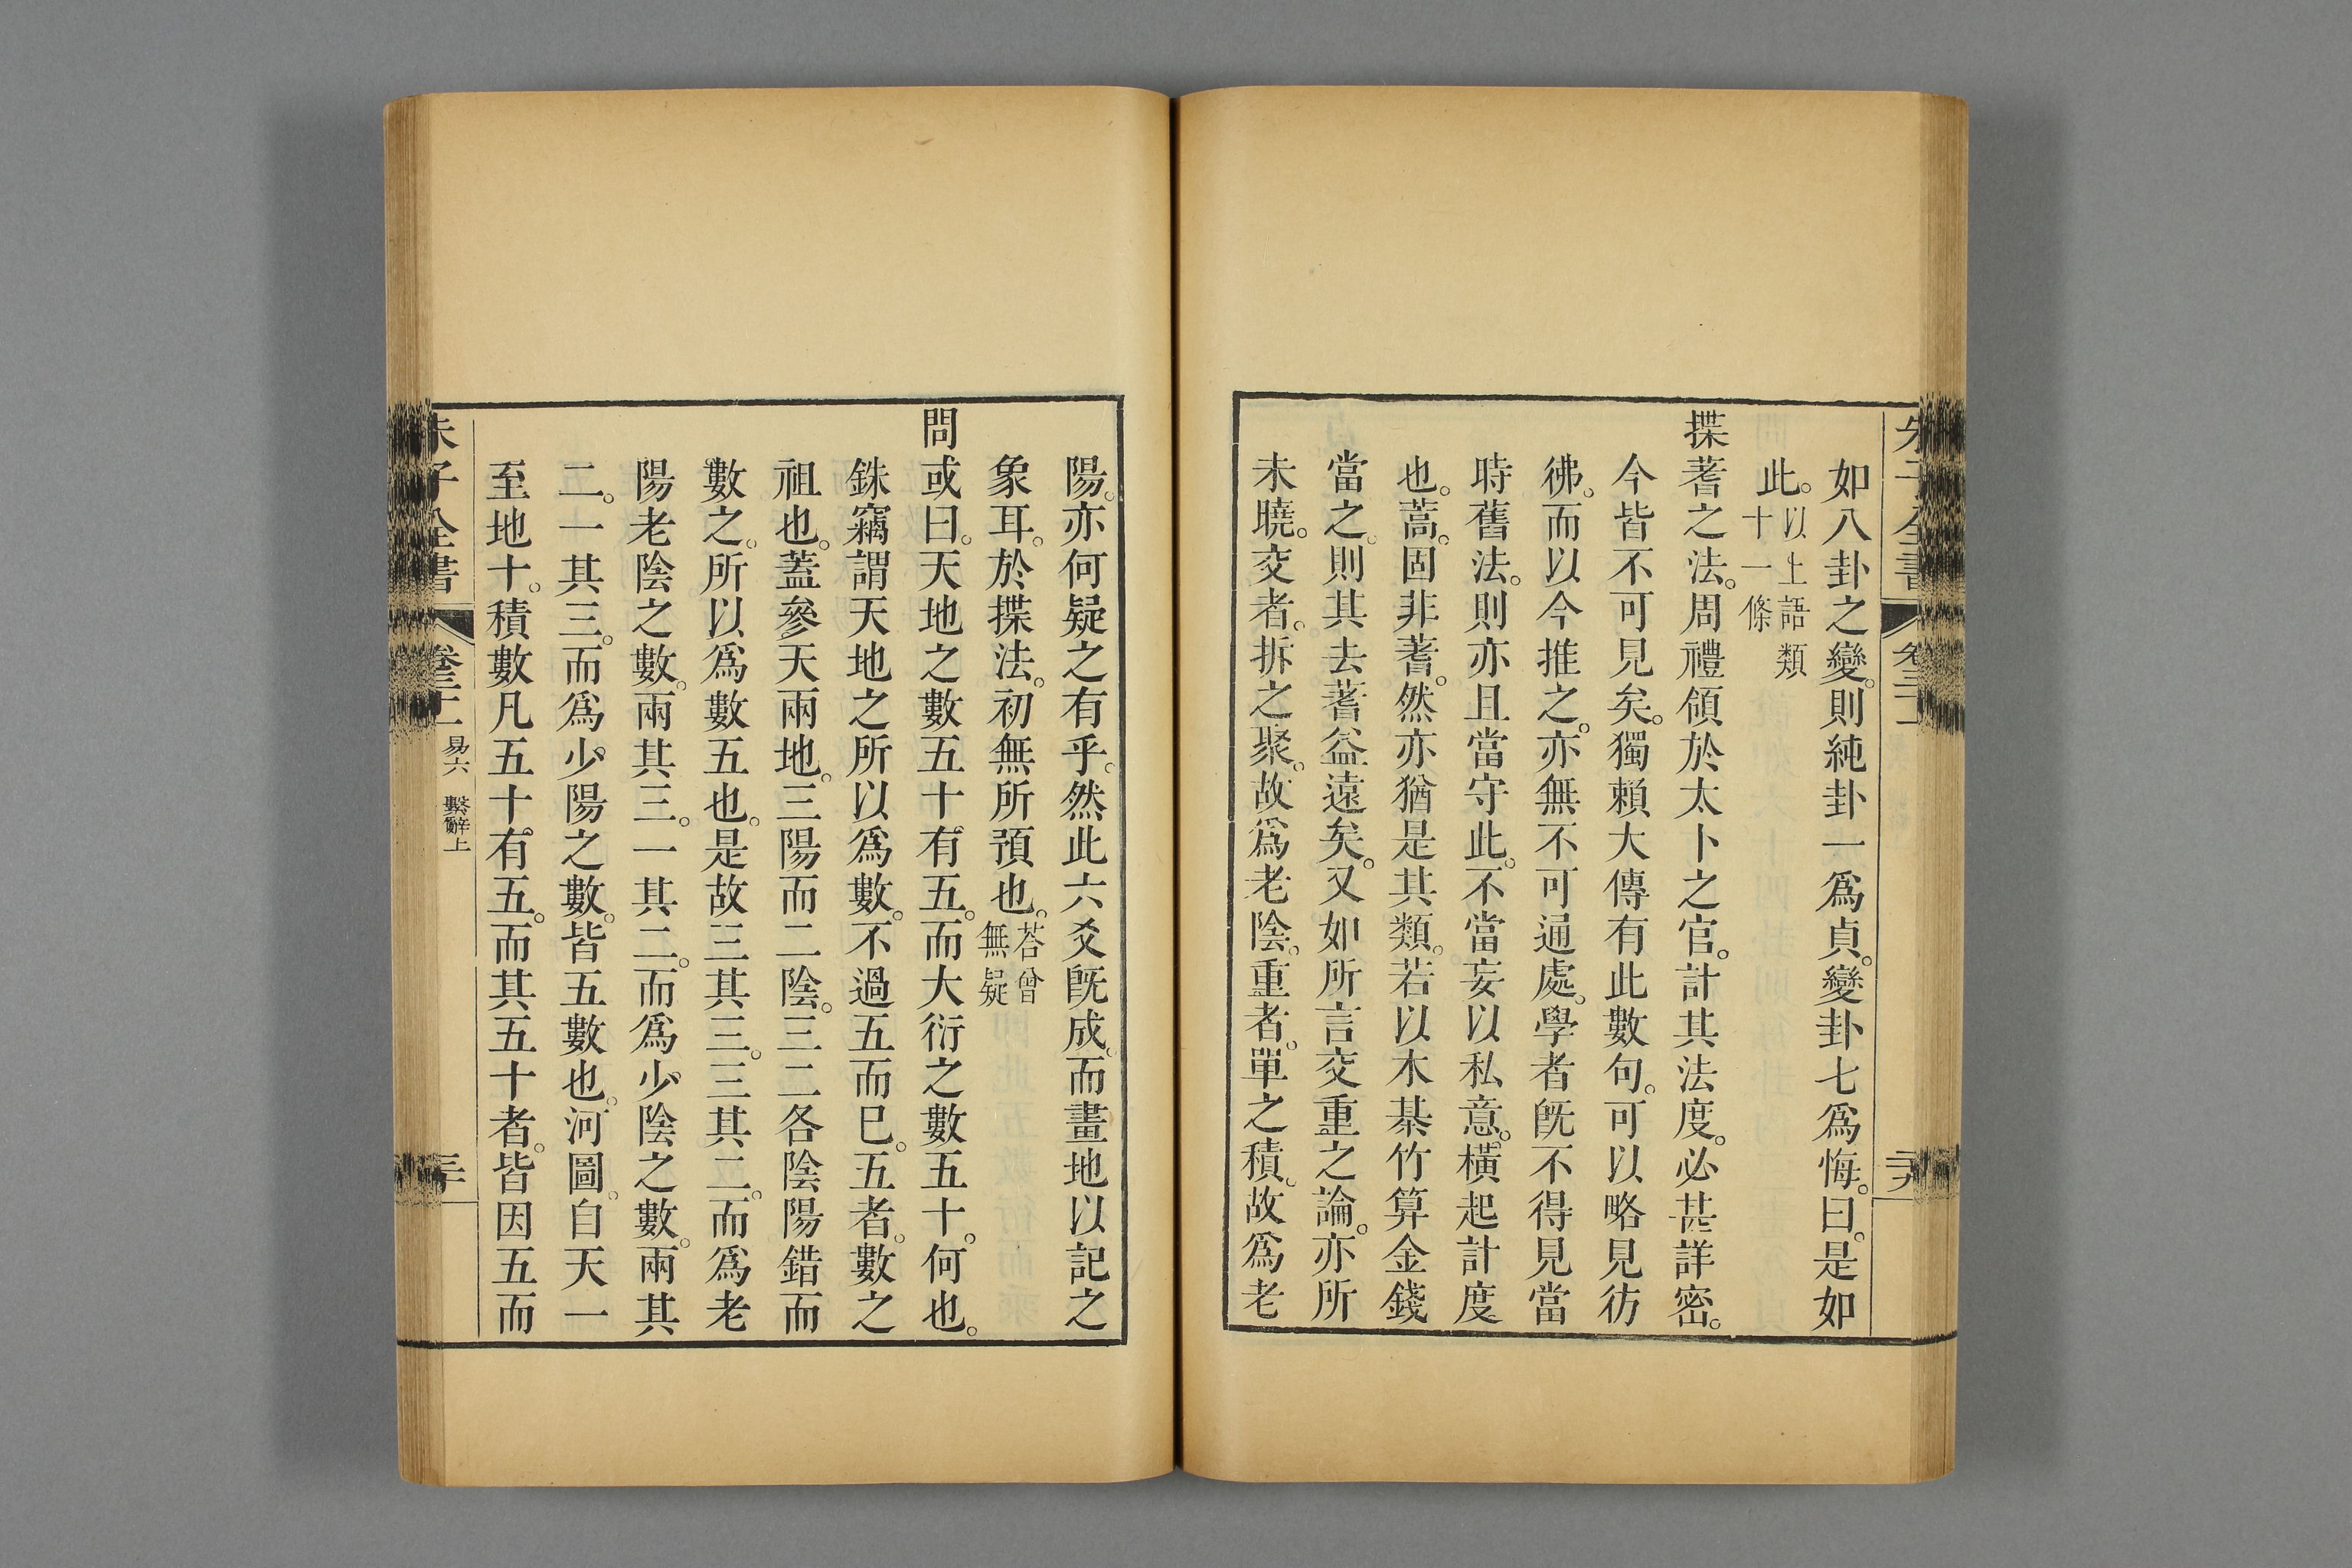 如八卦之變。則純卦一爲貞。變卦七爲悔。曰。是如
此。以上語類十一條
揲蓍之法。周禮領於太卜之官。計其法度。必甚詳密。
今皆不可見矣。獨賴大傳有此數句。可以略見彷
彿。而以今推之。亦無不可通處。學者旣不得見當
時舊法。則亦且當守此。不當妄以私意。橫起計度
也。蒿。固非蓍。然亦猶是其類。若以木棊竹算金錢
當之。則其去蓍益遠矣。又如所言交重之論。亦所
未曉。交者。拆之聚。故爲老陰。重者。單之積。故爲老
陽。亦何疑之有乎。然此六爻旣成。而畫地以記之
象耳。於揲法。初無所預也。荅曾無疑
問或曰。天地之數五十有五。而大衍之數五十。何也。
銖竊謂天地之所以爲數。不過五而已。五者。數之
祖也。蓋參天兩地。三陽而二陰。三二各陰陽錯而
數之。所以爲數五也。是故三其三。三其二。而爲老
陽老陰之數。兩其三。一其二。而爲少陰之數。兩其
二。一其三。而爲少陽之數。皆五數也。河圖。自天一
至地十。積數凡五十有五。而其五十者。皆因五而
朱子全書
易六 繫辭上